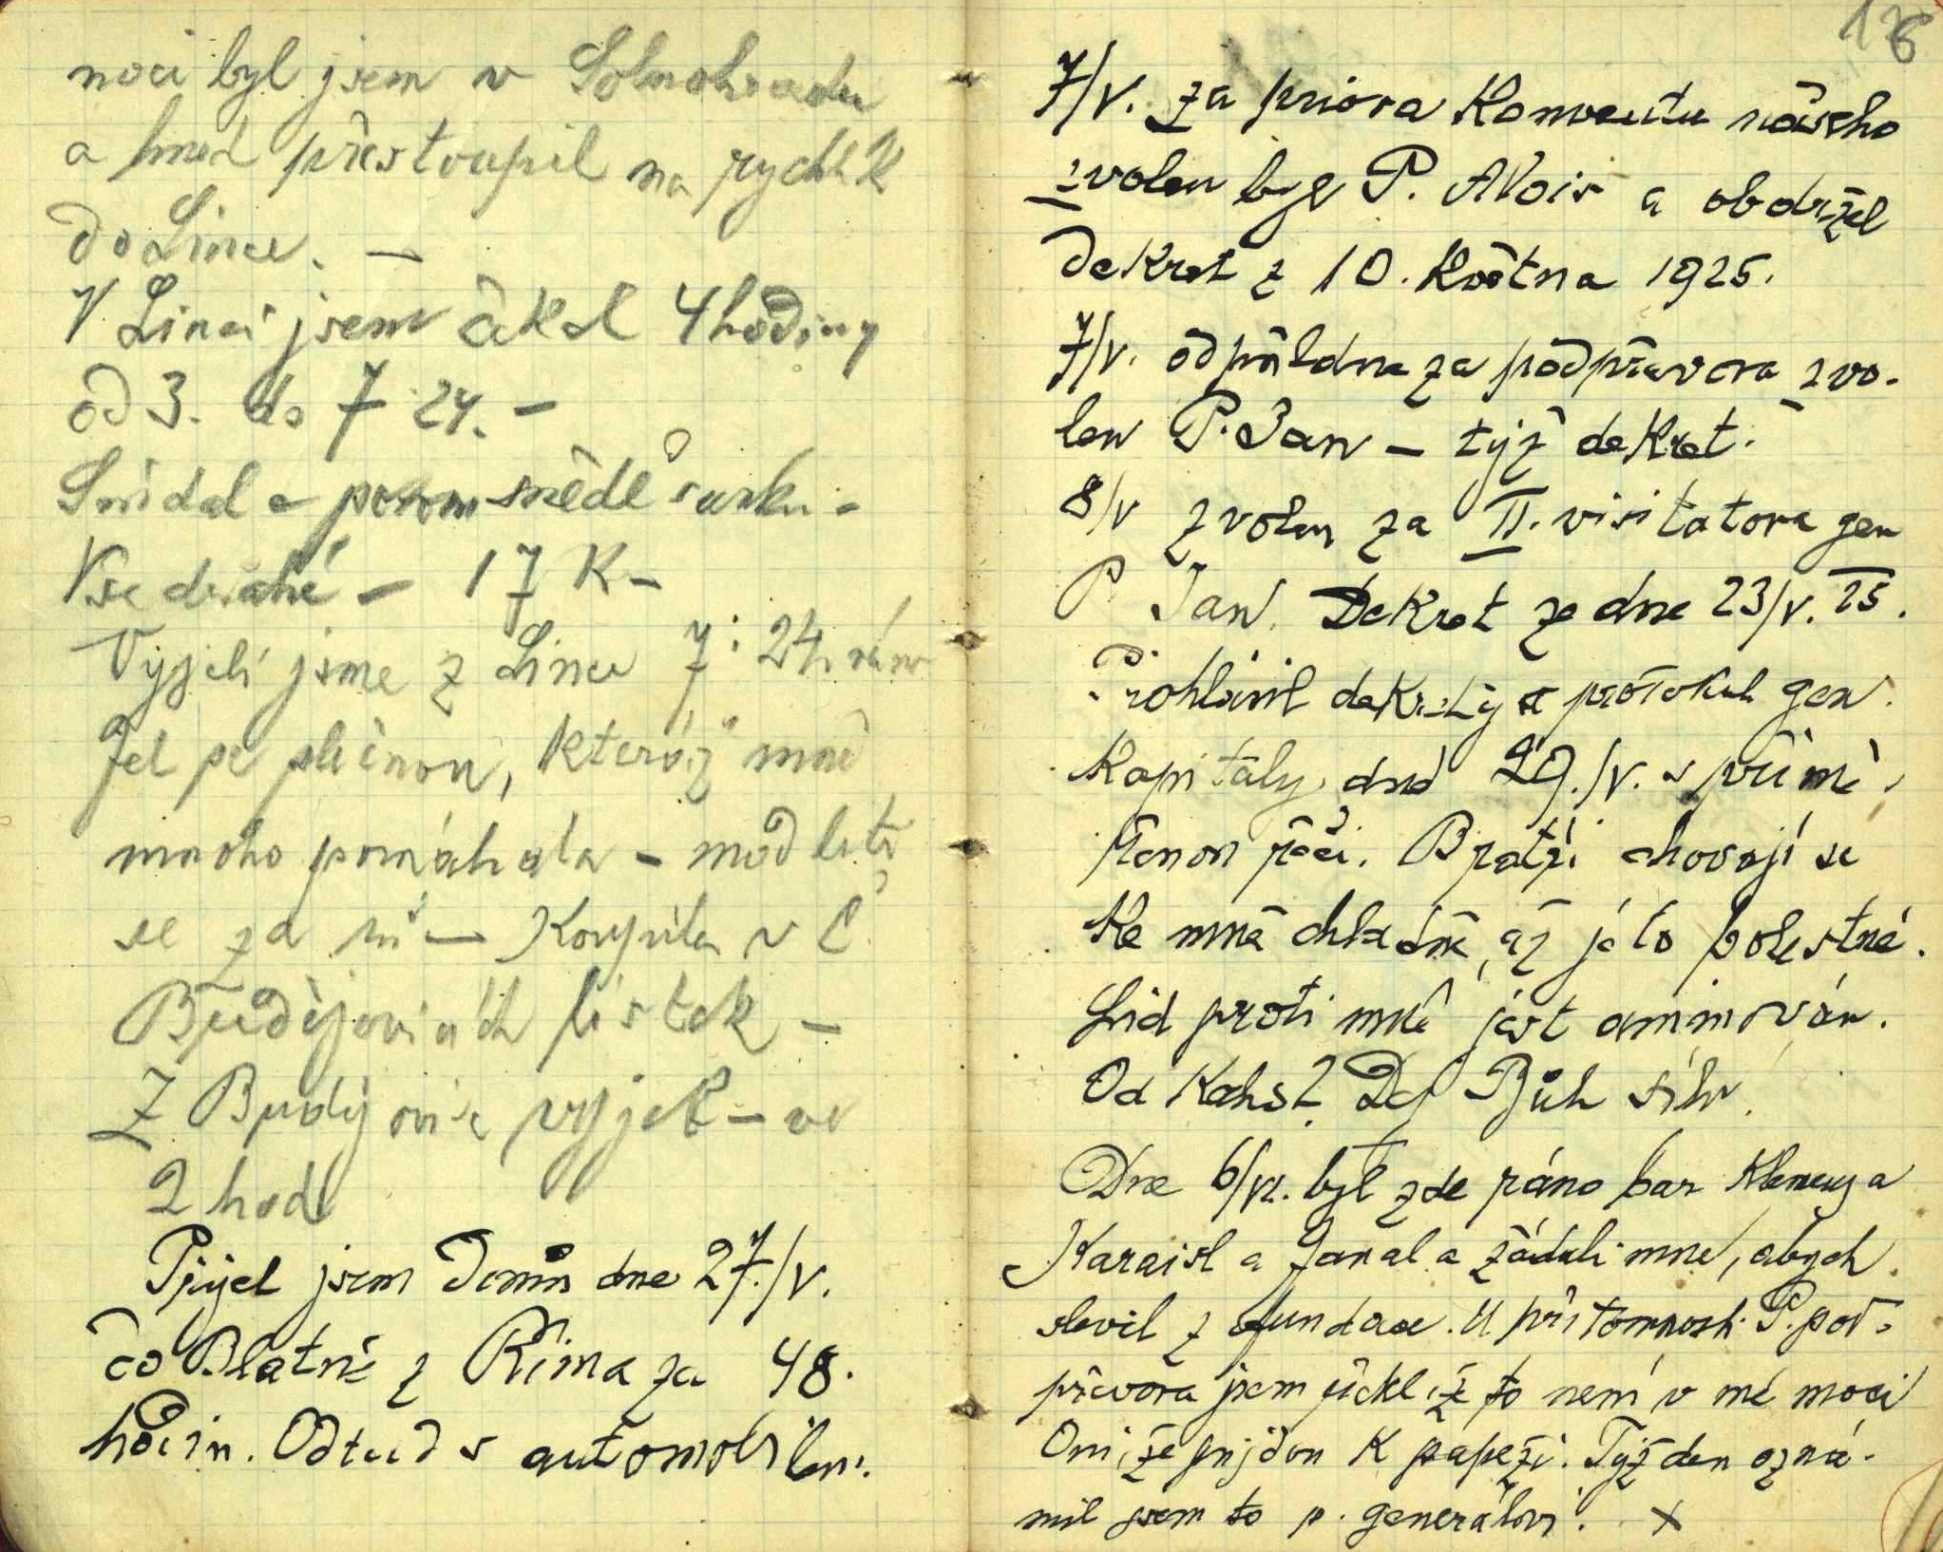 noci byl jsem v Solnohradu
a hned přestoupil na rychlík
do Lince. —
V Linci jsem čekal 4 hodiny
od 3. do 7 24. —
Snídal a potom snědl šunku -
Vše drahé — 17 K —
Vyjeli jsme z Lince 7:24 ráno
Jel se slečnou, kteráž mně
mnoho pomáhala — modliti
se za ni — Koupila v Č.
Budějovicích lístek —
Z Budějovic vyjel — ve
2 hod
Přijel jsem domů dne 27./V.
do Blatné z Říma za 48.
hodin. Odtud s automobilem.
16
7/V. za priora Konventu našeho
zvolen byl P. Alois a obdržel
dekret z 10. Května 1925.
7/V. odpoledne za podpřevora zvo-
len P. Jan — týž dekret.
8/V zvolen za II. visitatora gen
P. Jan. Dekret ze dne 23/V. 25.
Prohlásil dekrety a protokol gen.
Kapituly dne 29./V. s přimě-
řenou řečí. Bratři chovají se
Ke mně chladně, až je to bolestné.
Lid proti mně jest animován.
Od Koho? Dej Bůh sílu.
Dne 6/VI. byl zde ráno bar
Karaisl a žádali mne, abych
slevil z fundace. U přítomnosti P. pod-
převora jsem řekl, že to není v mé moci
Oni, že půjdou K papeži. Týž den ozná-
mil jsem to p. generálovi. x